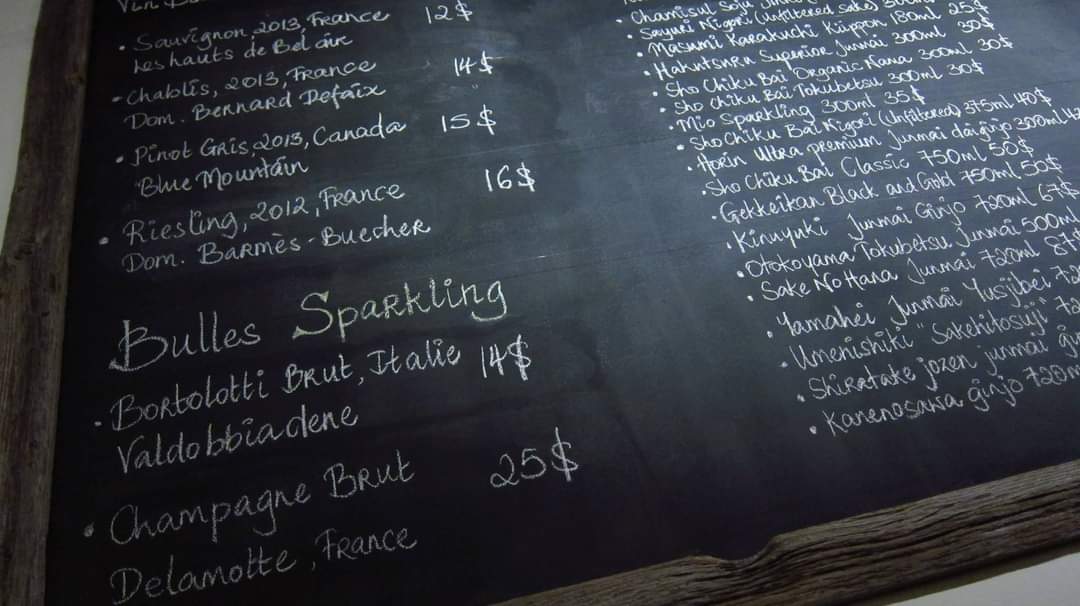 Vin
Sauvignon, 2013, France 12$
Les hauts de Bel air
Chablis, 2013, France 14$
Dom. Bernard Defaix
Pinot Gris, 2013, Canada 15$
Blue Mountain
Riesling, 2012, France 16$
Dom. Barmès-Buecher
Bulles Sparkling
Bortolotti Brut, Italie 14$
Valdobbiadene
Champagne Brut 25$
Delamotte, France
Chamisul Soju
Sayuri Nigori (Unfiltered sake) 300ml 25$
Masumi Karakuchi Kippon 180ml
Superior Junmai 300ml 30$
Sho Chiku Bai Organic Nama 300ml 30$
Sho Chiku Bai Tokubetsu 300ml 30$
Mio Sparkling 300ml 35$
Sho Chiku Bai Nigori (Unfiltered) 375ml 40$
Horin Ultra premium Junmai daiginjo 300ml
Sho Chiku Bai Classic 750ml 50$
Gekkeikan Black and Gold 750ml 50$
Kinuyuki Junmai Ginjo 720ml 67$
Otokoyama Tokubetsu Junmai 500ml
Sake No Hana Junmai 720ml
Yamahei Junmai Yusjibei
Umenishiki "Sakehitosuji"
Shiratake jozen junmai
Kanenosawa ginjo 720m